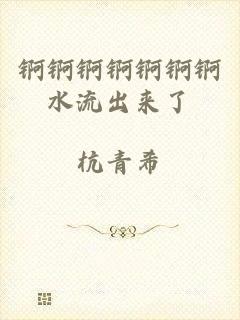 锕锕锕锕锕锕锕
水流出来了
杭青希